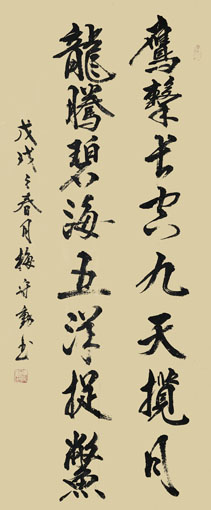 鷹擊長空九天攬月
龍騰碧海五洋捉鱉
戊戌之春月梅守勤书